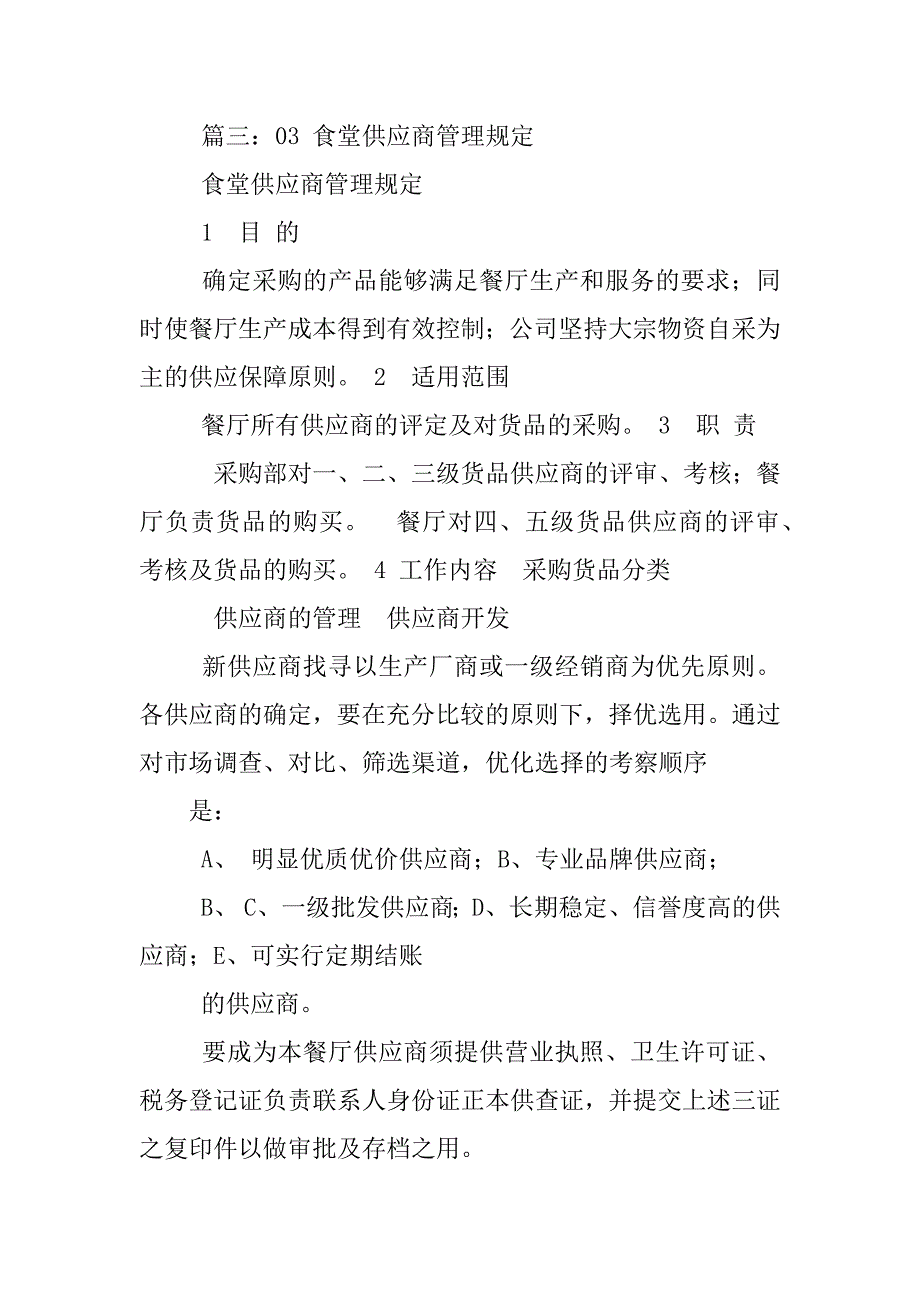 篇三：03 食堂供应商管理规定
食堂供应商管理规定
1　目 的
确定采购的产品能够满足餐厅生产和服务的要求；同
时使餐厅生产成本得到有效控制；公司坚持大宗物资自采为
主的供应保障原则。 2　适用范围
餐厅所有供应商的评定及对货品的采购。 3　职 责
采购部对一、二、三级货品供应商的评审、考核；餐
厅负责货品的购买。　餐厅对四、五级货品供应商的评审、
考核及货品的购买。 4 工作内容　采购货品分类
供应商的管理　供应商开发
新供应商找寻以生产厂商或一级经销商为优先原则。
各供应商的确定，要在充分比较的原则下，择优选用。通过
对市场调查、对比、筛选渠道，优化选择的考察顺序
是：
A、 明显优质优价供应商；B、专业品牌供应商；
B、 C、一级批发供应商；D、长期稳定、信誉度高的供
应商；E、可实行定期结账
的供应商。
要成为本餐厅供应商须提供营业执照、卫生许可证、
税务登记证负责联系人身份证正本供查证，并提交上述三证
之复印件以做审批及存档之用。